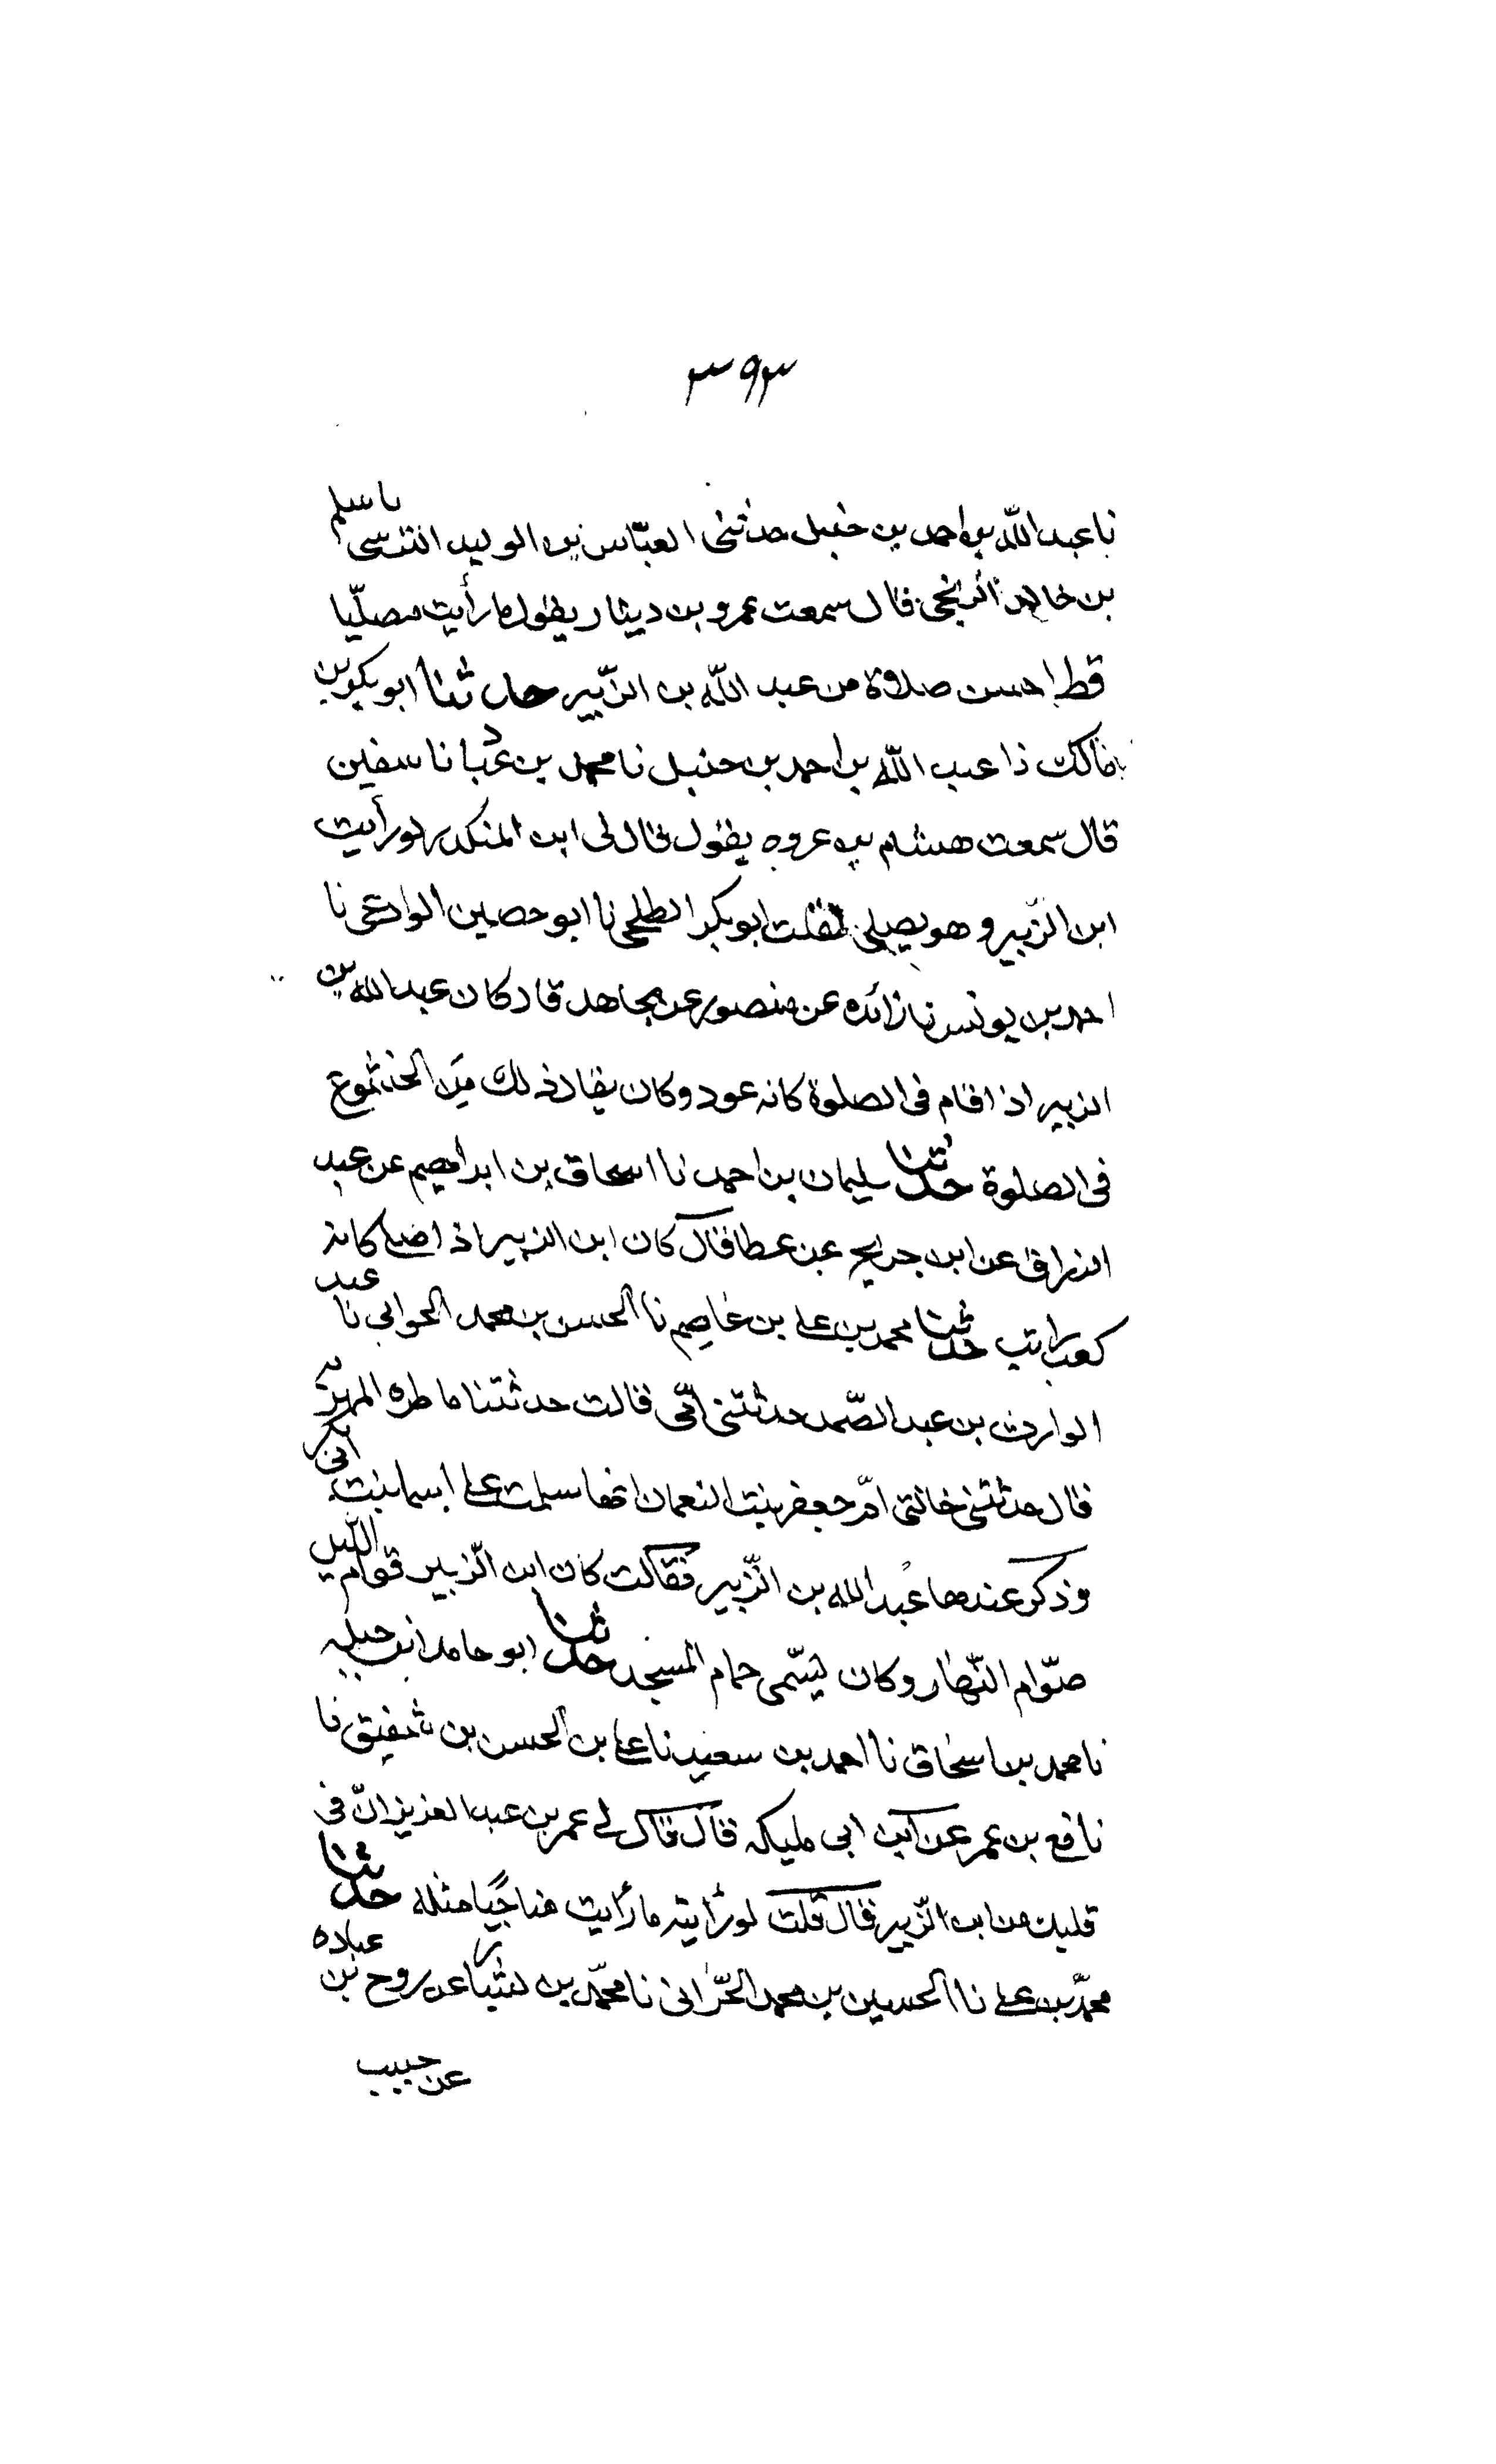 ٣٩٣
نا عبد الله بن احمد بن حنبل حدثنى العبّاس بن الوليد النرسى نا مسلم
بن خالد الزنجى قال سمعت عمرو بن دينار يقول ما رأيت مصلّيا
قط احسن صلاوة من عبد الله بن الزّبير حدثنا ابوبكر بن
مالك نا عبد الله بن احمد بن حنبل نا محمد بن عباد نا سفين
قال سمعت هشام بن عروه يقول قال لى ابن المنكدر لو رأيت
ابن الزّبير و هو يصلى ابوبكر الطلحى نا ابو حصين الوادعى نا
احمد بن يونس نا زائده عن منصور عن مجاهد قال كان عبد الله بن
الزبير اذا قام فى الصلوة كانه عود وكان يقال ذلك من الخشوع
فى الصلوة حدثنا سليمان بن احمد نا اسحاق بن ابراهيم عن عبد
الرزاق عن ابن جريج عن عطا قال كان ابن الزبير اذا صلى كانه
كعب راتب حدثنا محمد بن على بن عاصم نا الحسن بن محمد الحرانى نا عبد
الوارث بن عبد الصّمد حدثتنى امّى قالت حدثتنا ماطره المهريّة
قال حدثتنى خالتى امّ جعفر بنت النعمان انها سلمت على اسما بنت ابى بكر
وذكر عندها عبد الله بن الزّبير فقالت كان ابن الزّبير قوّام اللّيل
صوّام النّهار وكان يسّمى حمام المسجد حدثنا ابو حامد ابن جبله
نا محمد بن اسحاق نا احمد بن سعيد نا على بن الحسن بن شفيق نا
نافع بن عمر عن ابن ابى مليكه قال قال لى عمر بن عبد العزيز انّ فى
قلبك من ابن الزّبير قال قلت لو رأيته ما رأيت مناجيًا مثله حدثنا
محمّد بن على نا الحسين بن محمد الحرّانى نا محمّد بن بشار عن روح بن عباده
عن حبيب